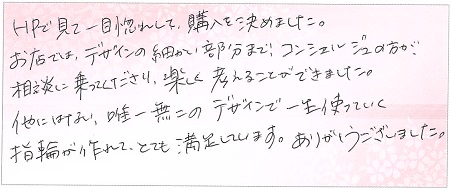 HPで見て一目惚れして、購入を決めました。
お店では、デザインの細かい部分まで、コンシェルジュの方が
相談に乗ってくださり、楽しく考えることができました。
他にはない、唯一無二のデザインで一生使っていく
指輪が作れて、とても満足しています。ありがとうございました。